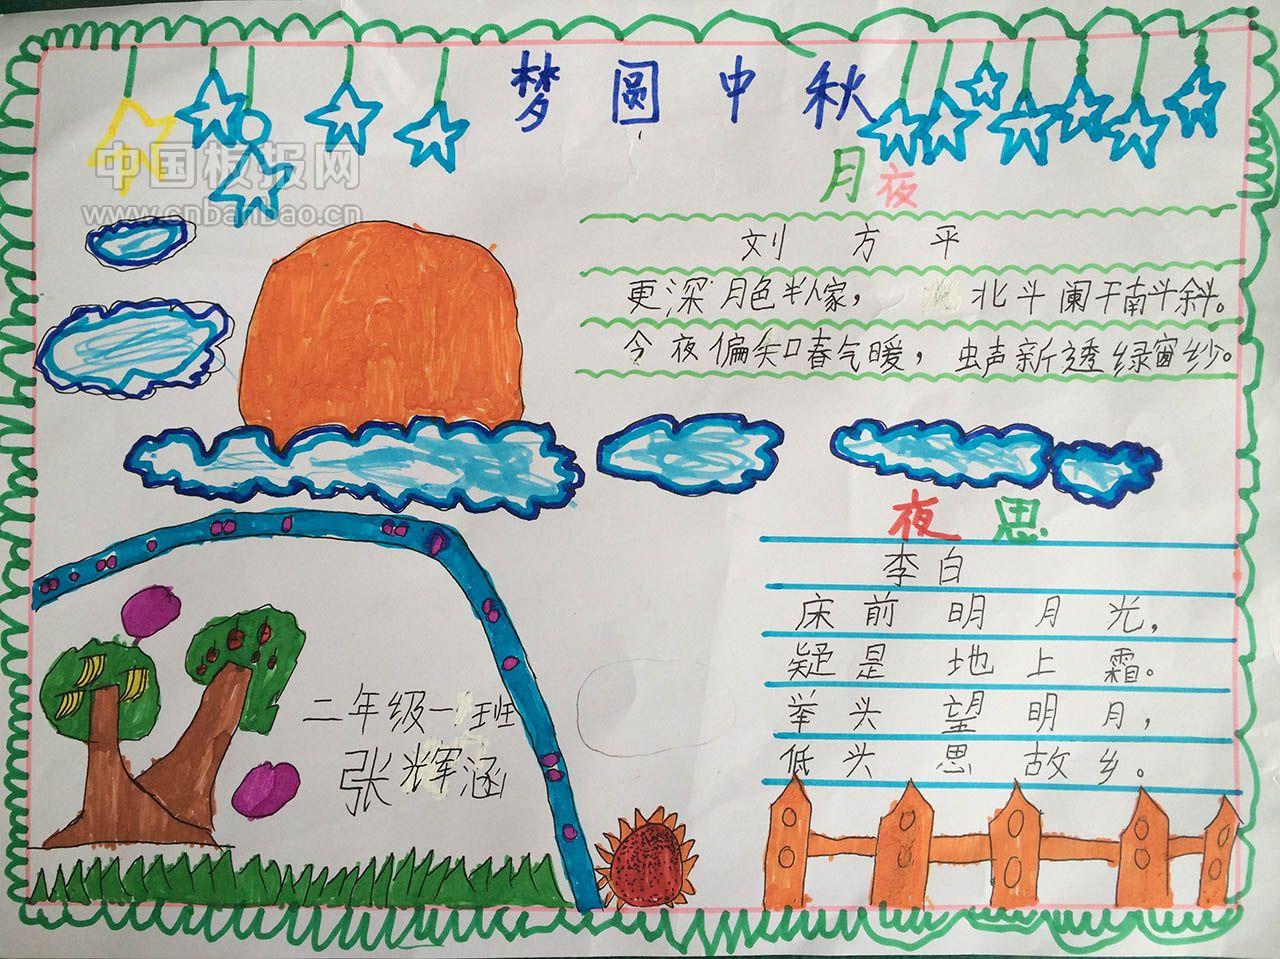 梦圆中秋
中国板报网
www.cnbanbao.cn
月夜
刘方平
更深月色半人家，北斗阑干南斗斜。
今夜偏知春气暖，虫声新透绿窗纱。
夜思
李白
床前明月光，
疑是地上霜。
举头望明月，
低头思故乡。
二年级一班
张辉涵